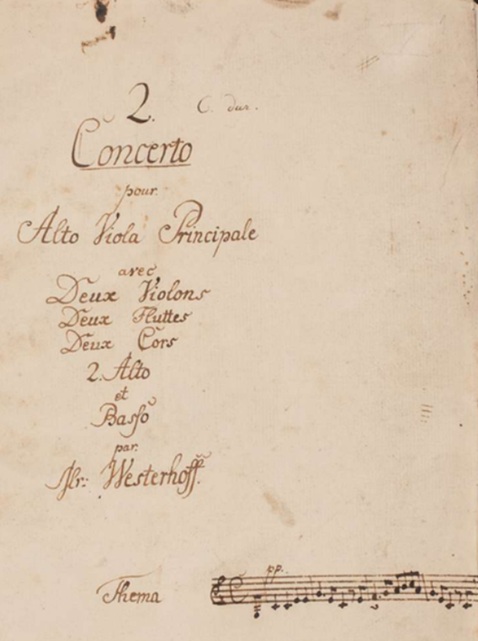 2.
C. dur.
Concerto
pour
Alto Viola Principale
avec
Deux Violons
Deux Fluttes
Deux Cors
2. Alto
et
Basso
par
Westerhoff.
pp.
Thema